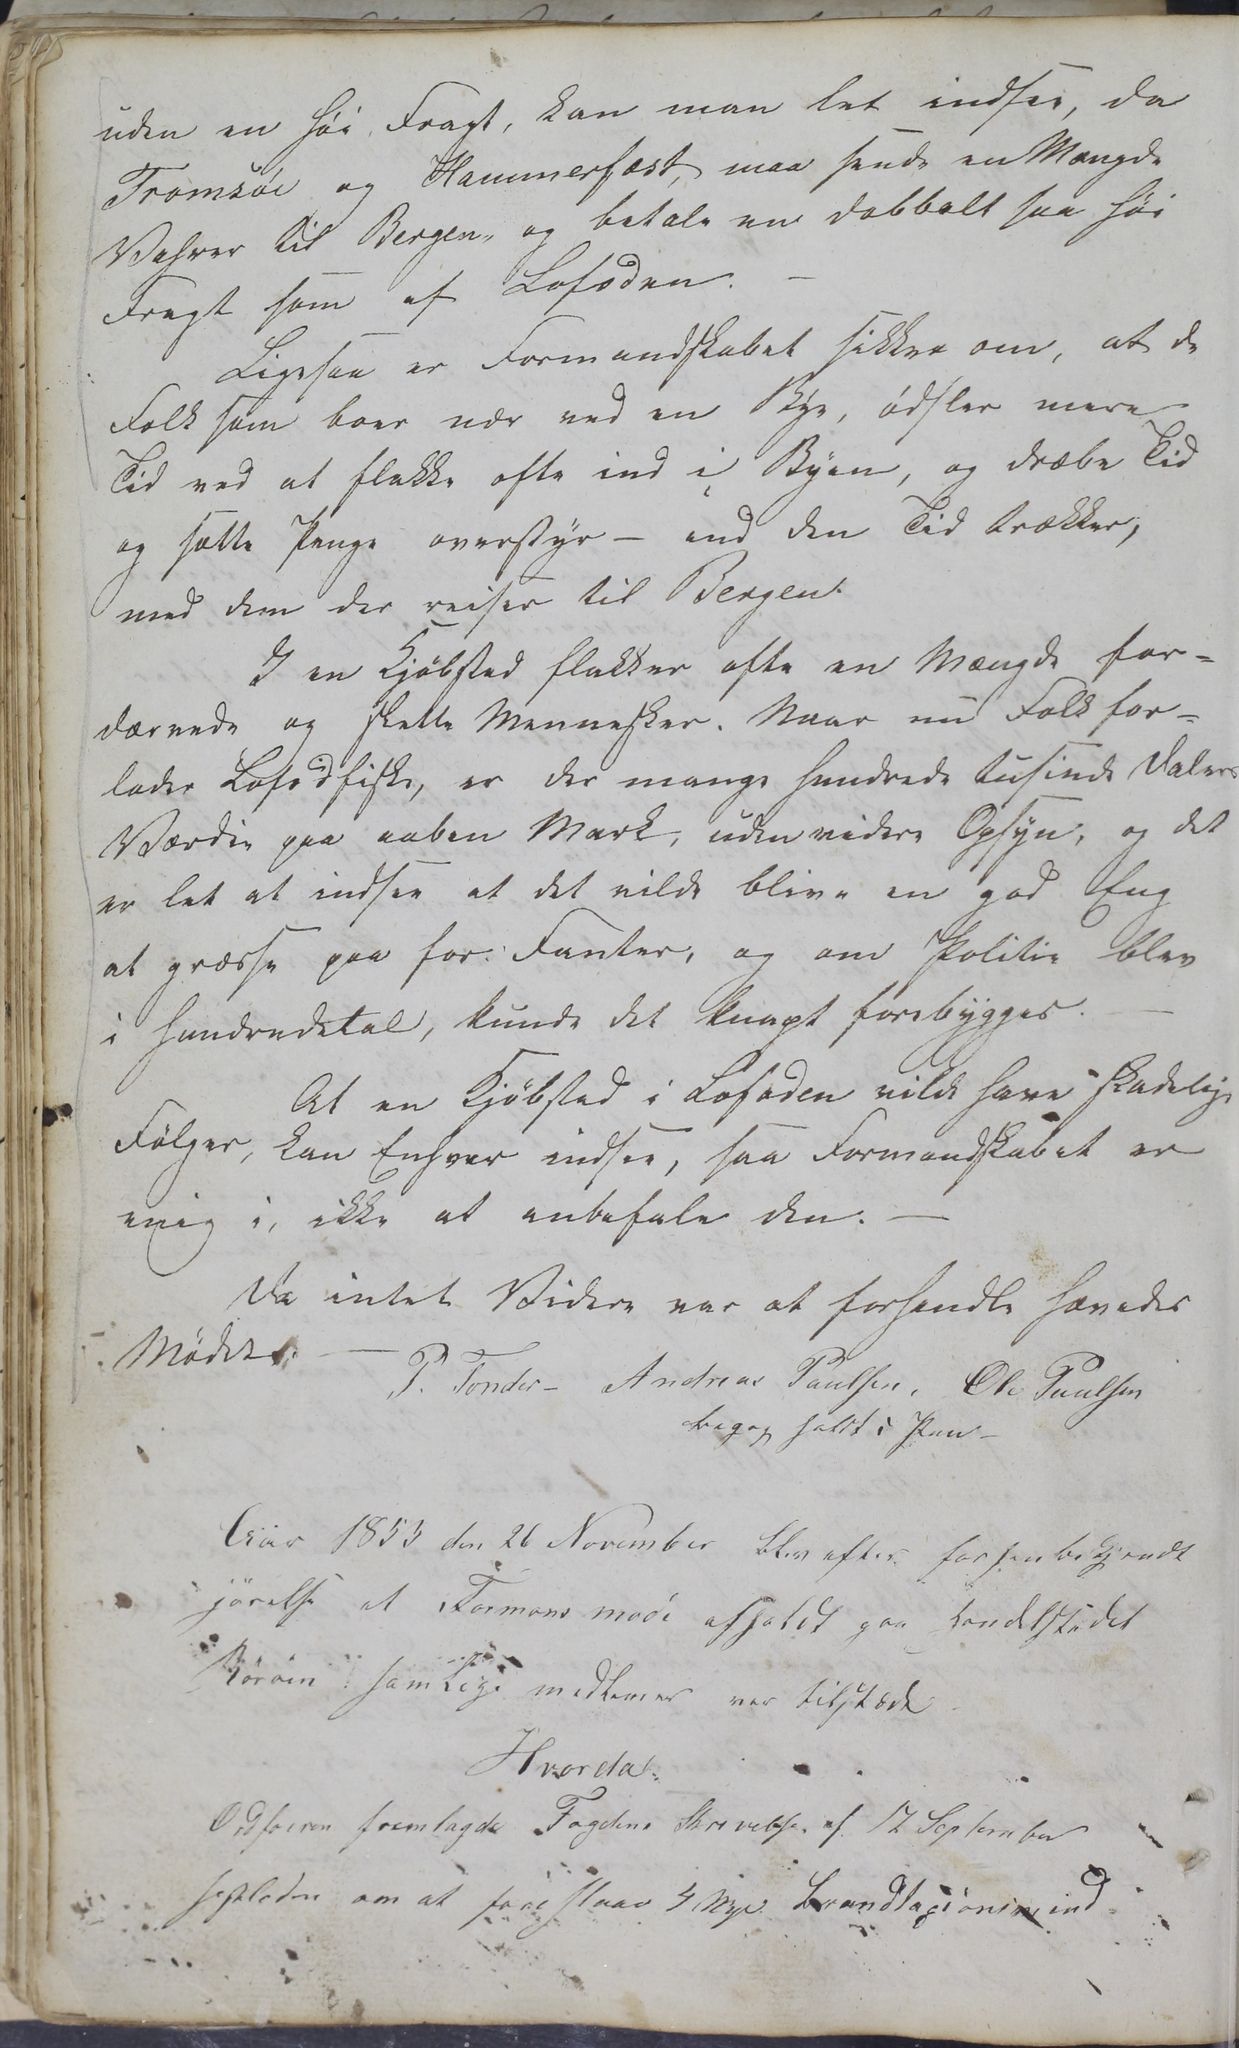 uden en høi Fragt, kan man let indsee, da
Tromsøe og Hammerfæst, maa sende en Mængde
Vahrer til Bergen, og betale en dobbelt saa høi
Fragt som af Lofoden. —
Ligesaa er Formandskabet sikker om, at de
Folk som boer nær ved en Bye, ødsler mere
Tid ved at flakke ofte ind i Byen, og dræbe Tid
og sætte Penge overstyr — end den Tid trækker,
med dem der reiser til Bergen.
I en Kjøbsted flakker ofte en Mængde for-
dærvede og slette Mennesker. Naar nu Folk for-
lader Lofodfiske, er der mange hundrede tusinde Dalers
Værdie paa aaben Mark, uden videre Opsyn, og det
er let at indsee at det vilde blive en god Eng
at græsse paa for Fanter, og om Politie blev
i hundredetal, kunde det knapt forebygges. —
At en Kjøbsted i Lofoden vilde have skadelige
Følger, kan Enhver indsee, saa Formandskabet er
enig i, ikke at anbefale den. —
Da intet Videre var at forhandle hævedes
Mødet. — P. Tonder — Andreas Paulsen, Ole Paulsen
begge holdt i Pen —
Aar 1853 den 26 November blev efter forhen bekjendt
jørelse et Formans møde afholdt paa Handelstedet
Rørøen samtlige medlemer var tilstæde
Hvorda:
Ordføreren fremlagde Fogdens Skrivelse af 12 September
sistleden om at foreslaae 4 Nye Brandtaxions mænd